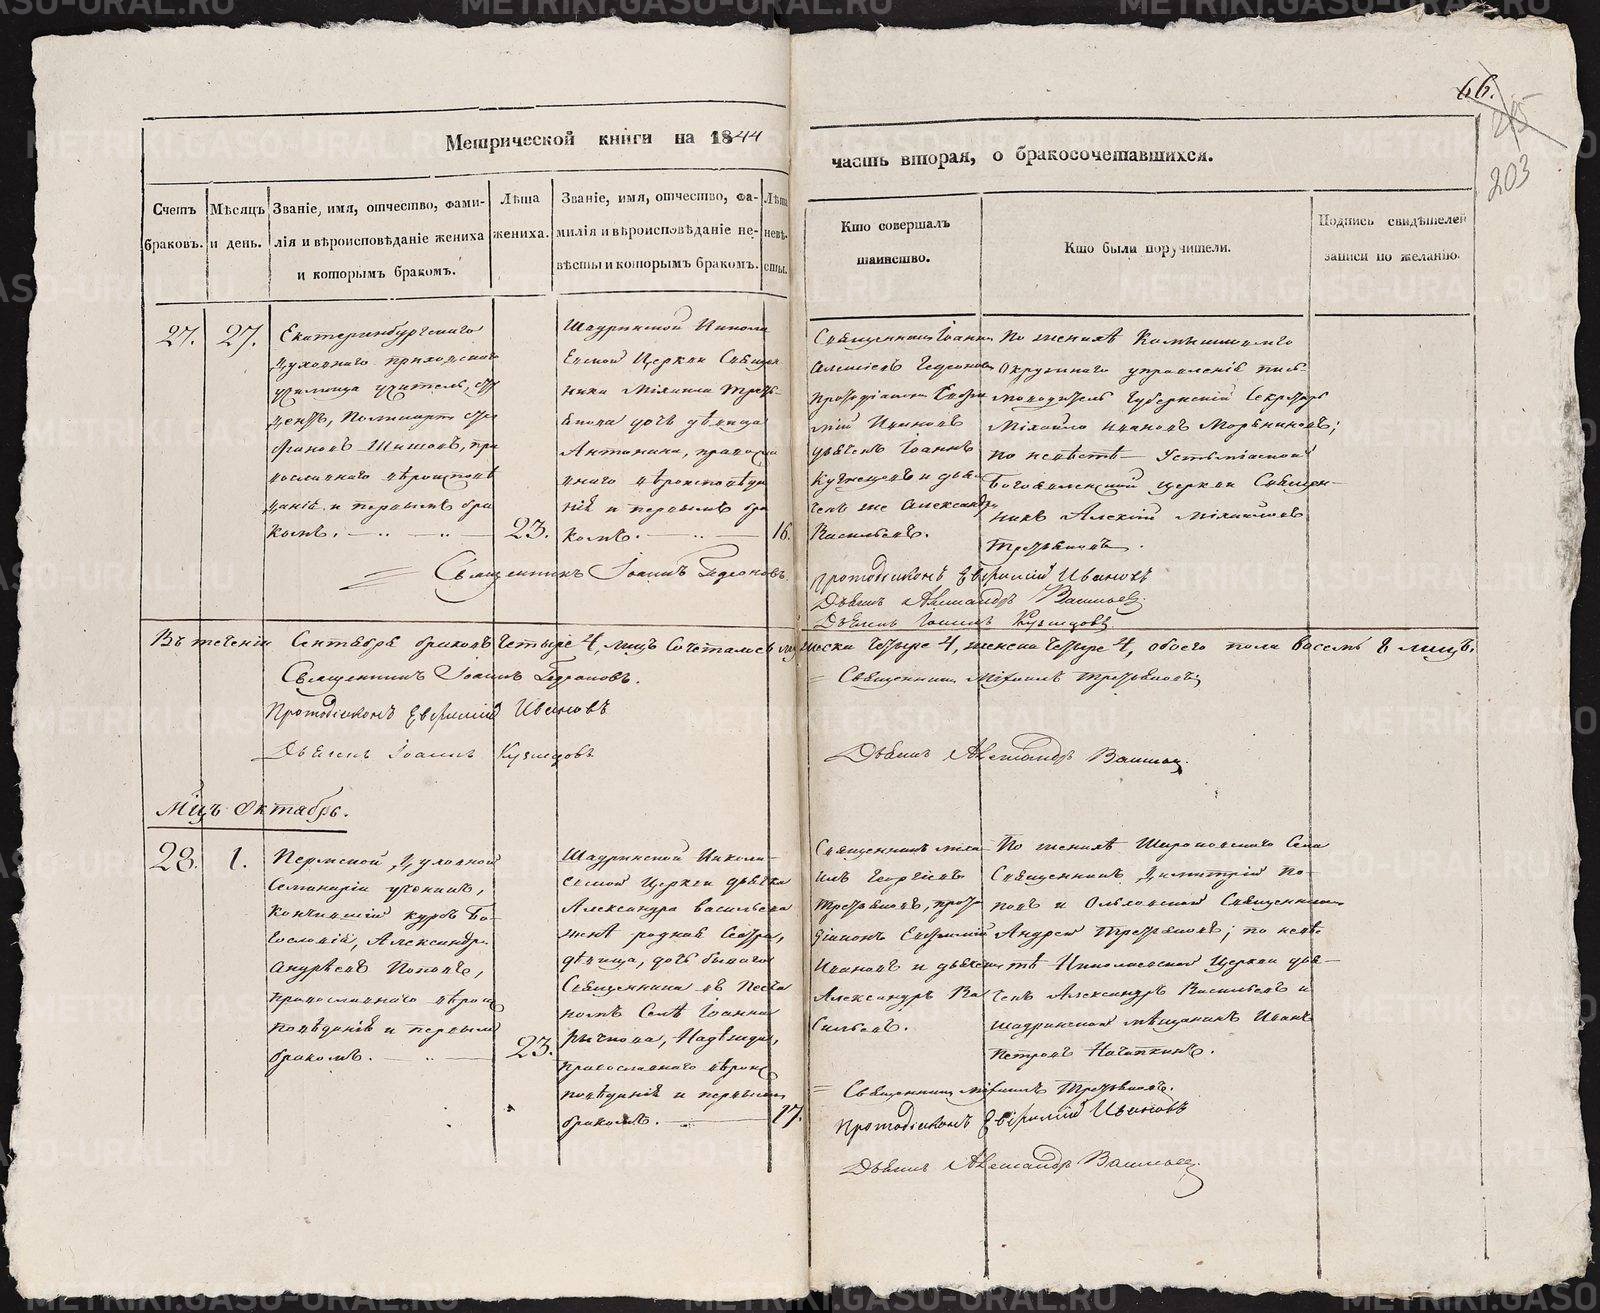 66.
203
Метрической книги на 1844
часть вторая, о бракосочетавшихся.
Счетъ браковъ.
Мѣсяцъ и день.
Званіе, имя, отчество, фами-
лія и вѣроисповѣданіе жениха
и которымъ бракомъ.
Лѣта
жениха.
Званіе, имя, отчество, фа-
милія и вѣроисповѣданіе не-
вѣсты и которымъ бракомъ.
Лѣта
невѣ-
сты.
Кто совершалъ
таинство.
Кто были поручители.
Подпись свидѣтелей
записи по желанію.
27.
27.
Екатеринбургскаго
духовнаго приходскаго
училища учитель, сту
дентъ,
Шишовъ, пра
вославнаго вѣроисповѣ
данія и первымъ бра
комъ.
23.
Шадринской Никола
евской Церкви Священ
ника Михаила Трезъ-
вова дочь дѣвица
Антонина, правосла
внаго вѣроисповѣда
нія и первымъ бра
комъ.
16.
Священникъ Іоаннъ
Алексіевъ Гедеоновъ
протодіаконъ Евфи
мій Ивановъ
дьячекъ Іоаннъ
Кузнецовъ и дья
чекъ же Александръ
Васильевъ.
По женихѣ Камышловскаго
Окружнаго управленія пись
моводитель Губернскій Секретарь
Михайло Ивановъ
по невѣстѣ Усть-Міасской
Богоявленской церкви Священ-
никъ Алексій Михайловъ
Священникъ Іоаннъ Гедеоновъ.
Протодіаконъ Евфимій Ивановъ
Дьячекъ Александръ Васильевъ.
Дьячекъ Іоаннъ Кузнецовъ
Въ теченіи Сентября браковъ четыре 4, лицъ сочеталось мужеска четыре 4, женска четыре 4, обоего пола восемь 8 лицъ.
Священникъ Іоаннъ Гедеоновъ.
Священникъ Михаилъ
Протодіаконъ Евфимій Ивановъ
Дьячекъ Іоаннъ Кузнецовъ
Дьячекъ Александръ Васильевъ
Мцъ Октябрь.
28.
1.
Пермской Духовной
Семинаріи ученикъ,
кончившій курсъ Бо-
гословія, Александръ
Андреевъ Поповъ,
православнаго вѣроис
повѣданія и первымъ
бракомъ.
23.
Шадринской Никола-
евской Церкви дьячка
Александра Васильева
женѣ родная Сестра,
дѣвица, дочь бывшаго
Священника въ Песча
номъ Селѣ Іоанна
Рычкова, Надежда,
православнаго вѣроис
повѣданія и первымъ
бракомъ.
17.
Священникъ Миха
илъ Георгіевъ
прото
діаконъ Евфимій
Ивановъ и дьячекъ
Александръ Ва
сильевъ.
По женихѣ Села
Священникъ Димитрій По-
повъ и Ольховской Священникъ
Андрей по невѣс
тѣ Николаевской Церкви дья-
чекъ Александръ Васильевъ и
шадринской мѣщанинъ Иванъ
Петровъ
Священникъ Михаилъ
Протодіаконъ Евфимій Ивановъ
Дьячекъ Александръ Васильевъ